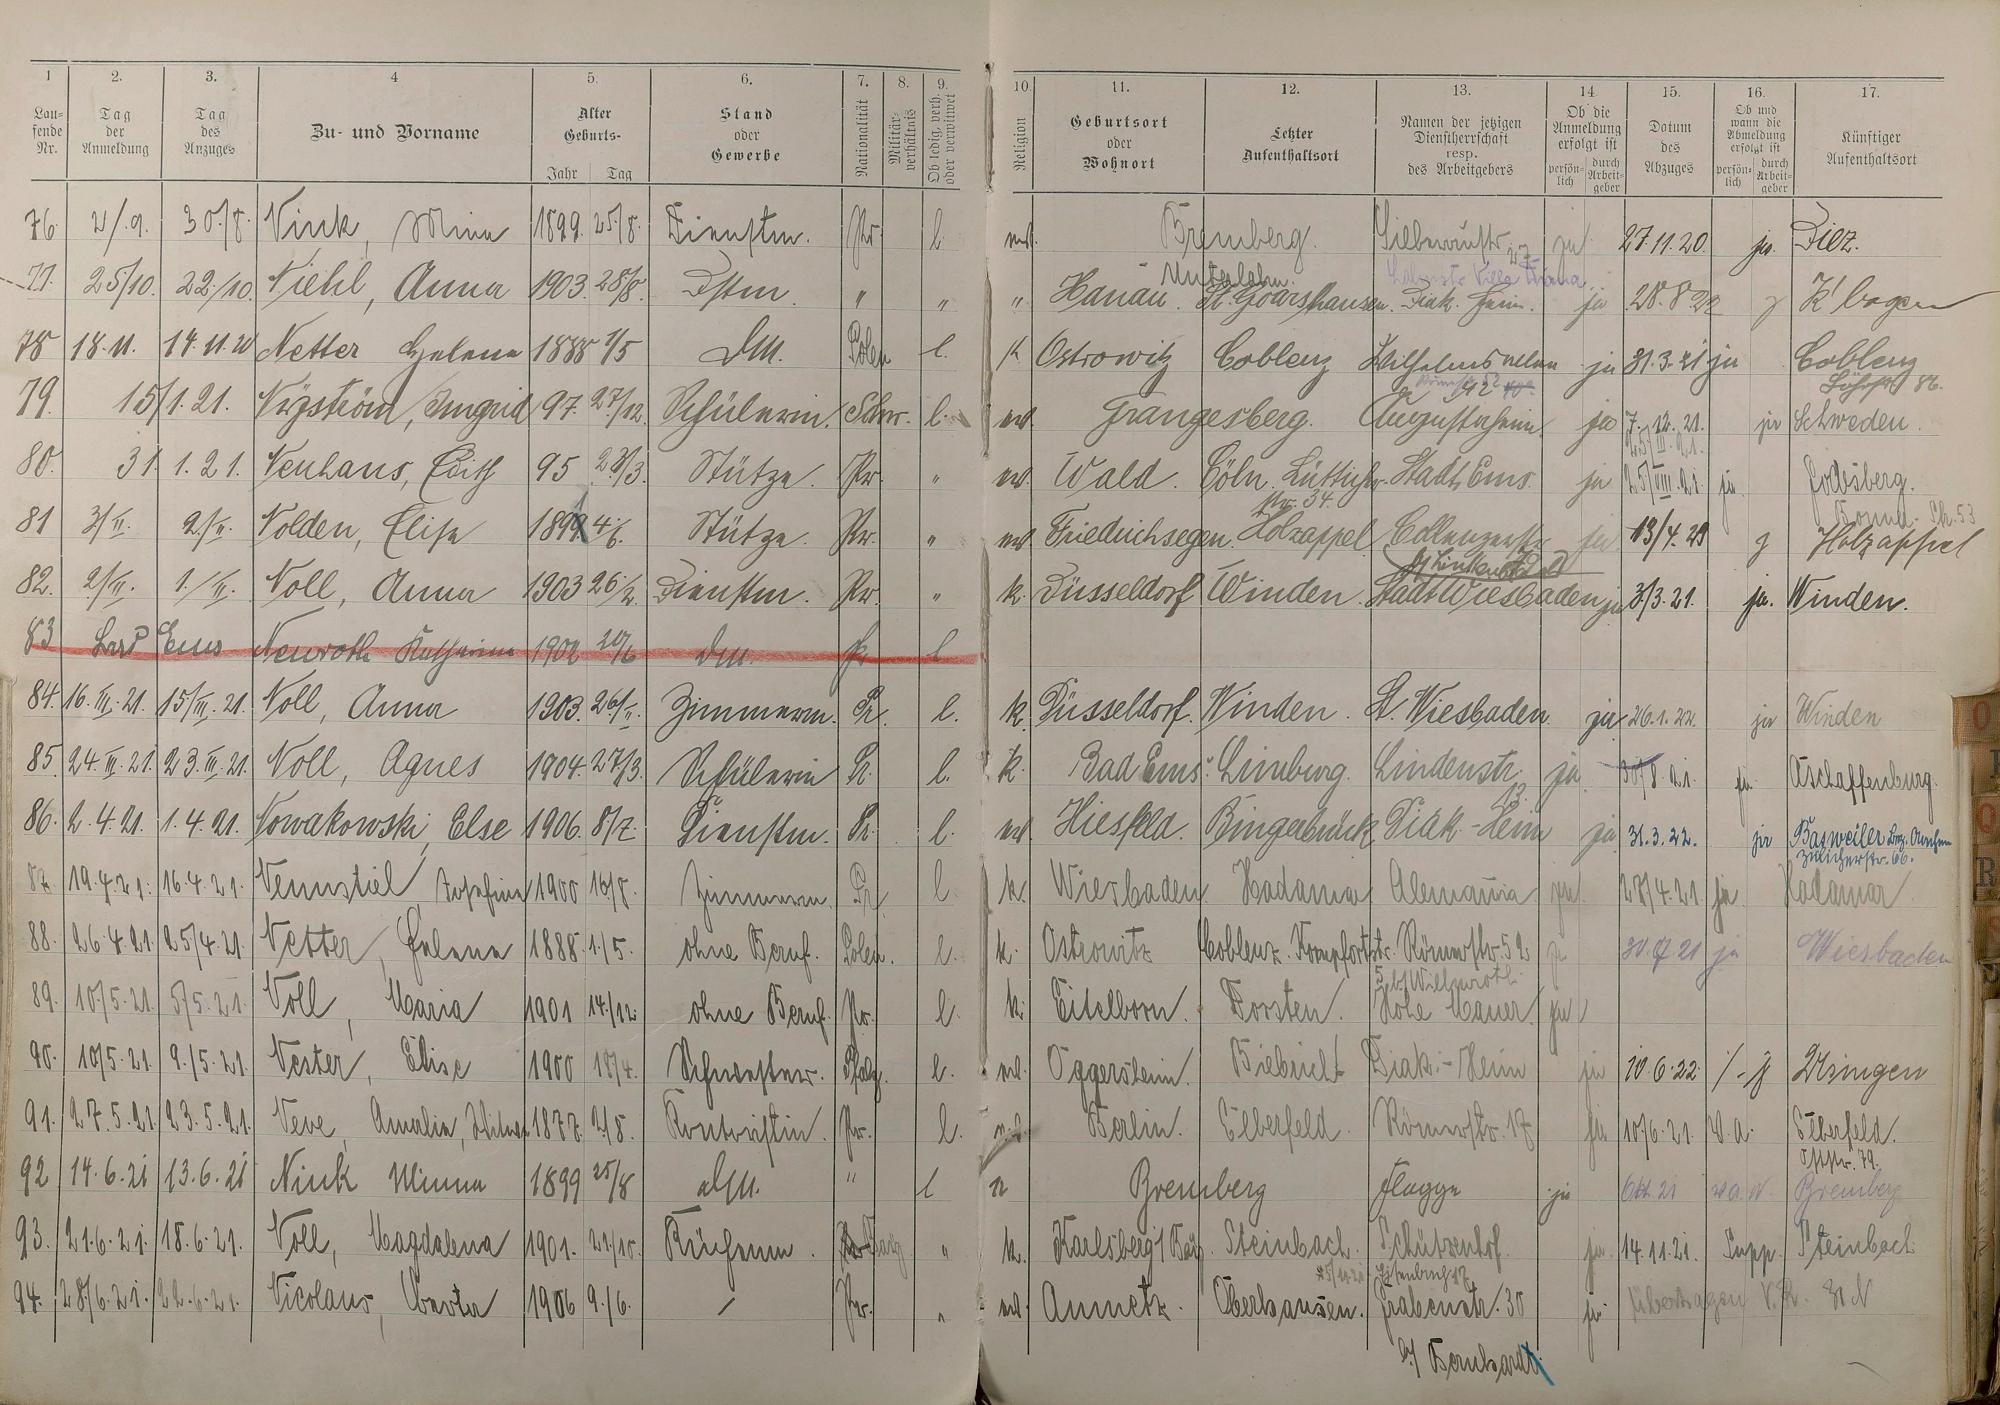 1 2. 3. 4 5. 6. 7. 8. 9. 10. 11. 12. 13. 14 15. 16. 17.
Lau-
fende
Nr.
Tag
der
Anmeldung
Tag
des
Anzuges
Zu- und Vorname
Alter
Geburts-
Jahr Tag
Stand
oder
Gewerbe
Nationalität
Militär-
verhältnis
Ob ledig, verh.
oder verwitwet
Religion
Geburtsort
oder
Wohnort
Letzter
Aufenthaltsort
Namen der jetzigen
Dienstherrschaft
resp.
des Arbeitgebers
Ob die
Anmeldung
erfolgt ist
persön-
lich
durch
Arbeit-
geber
Datum
des
Abzuges
Ob und
wann die
Abmeldung
erfolgt ist
persön-
lich
durch
Arbeit-
geber
Künftiger
Aufenthaltsort
76. 2/.9. 30./8. Nink, Mina 1899. 25/8. Dienstm. Pr. l. Bremberg. 27 ja 27.11.20. ja. Diez.
Unterlahn. Villa Diana
77. 25/10. 22./10. Niehl, Anna 1903. 28/8. Dstm. " " " Hanau. St. Goarshausen. Diak. Heim. ja 28.8.22
78 18.11. 14.11.20 Netter Helena 1888 1/5 dM. Polen l. k Ostrowitz Coblenz Wilhelmsallee ja 31.3.21 ja Coblenz
Löhrstr 86.
79. 15/1.21. Nyström, Ingrid 97. 27/12. Schülerin. Schw. l. ev. Grangesberg. Augustaheim. ja 7.12.21. ja Schweden.
25/III.21.
80. 31.1.21. Neuhaus, Edith 95 23/3. Stütze. Pr. " ev. Wald. Cöln. Lütticher- Stadt Ems. ja 25/VIII.21. ja. Godesberg.
str. 34. Bonn
81 3/II. 2/II. Nolden, Elise 1899 4/6. Stütze. Pr. " ev. Friedrichsegen. Holzappel. Coblenzerstr ja 13/4.21 Holzappel
82. 2/III. 1./III. Noll, Anna 1903 26/2. Dienstm. Pr. " k. Düsseldorf Winden. Stadt Wiesbaden ja 3/3.21. ja. Winden.
83 Bad Ems Neuroth Katharina 1902 20/6 dM. Pr l
84. 16.III.21. 15/III.21. Noll, Anna 1903. 26/II. Zimmerm. Pr. l. k. Düsseldorf. Winden. St. Wiesbaden. ja 26.1.22. ja Winden
85. 24.III.21. 23.III.21. Noll, Agnes 1904. 27/3. Schülerin Pr. l. k. Bad Ems. Limburg. Lindenstr. ja 30/8.21. ja. Aschaffenburg.
13.
86. 2.4.21. 1.4.21. Nowakowski, Else 1906. 8/7. Dienstm. Pr. l. ev. Hiesfeld. Bingerbrück Diak.-Heim ja 31.3.22. ja Basweiler Bez. Aachen
Zülicherstr. 66.
87. 19.4.21. 16.4.21. Nennstiel, Josefine 1900 16/8. Zimmerm. Pr. l. k. Wiesbaden. Hadamar Alemania ja 27/4.21 ja. Hadamar
88. 26.4.21. 25/4.21. Netter, Helena 1888. 1/5. ohne Beruf. Polen. l. k. Ostrowitz Coblenz. Römerstr. 52 ja 30.9.21 ja Wiesbaden
89. 10/5.21. 5/5.21. Noll, Maria 1901 14/12. ohne Beruf. Pr. l. k. Eitelborn. Dorsten. Hohe Mauer. ja
90. 10/5.21. 9./5.21. Nester, Elise 1900 18/4. Schwester. Pfalz. l. ev. Oggersheim. Biebrich Diak.-Heim ja 10.6.22. Usingen
91. 27.5.21. 23.5.21. Neve, Amalie, 1877. 2/8. Kontoristin. Pr. l. ev. Berlin. Elberfeld. Römerstr. 17 ja 10/6.21. v.a. Elberfeld.
Oststr. 79.
92 14.6.21 13.6.21 Nink Minna 1899 25/8 dM. " l Bremberg Flagge ja Okt. 21 v.a.v. Bremberg
93. 21.6.21. 18.6.21. Noll, Magdalena 1901. 21/10. Küchenm. " k. Karlsberg Steinbach. Schützenhof. ja 14.11.21. Steinbach
94. 28/6.21. 22.6.21. Nicolaus, Berta 1906 9./6. / Pr. " ev. Aumetz. Oberhausen. Grabenstr. 30 ja Übertragen V.R.
b/ Bernhardt.